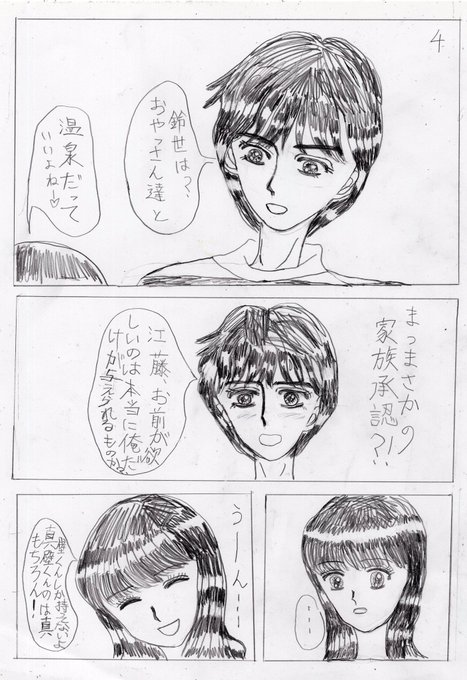 4
鈴世は?、
おやっさん達と
温泉だって
いいよねー♡
まっまさかの
家族承認?!
江藤、お前が欲
しいのは本当に俺だ
けが与えれるものか
…
うーん…
もちろん!
真壁くんのは真
壁くんしか持てないよ